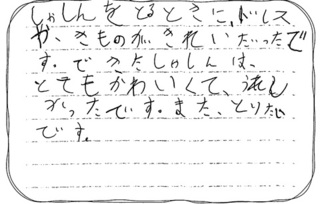 しゃしんをとるときに、ドレス
や、きものが、きれいだったで
す。できたしゃしんは、
とてもかわいくて、うれし
かったです。また、とりたい
です。